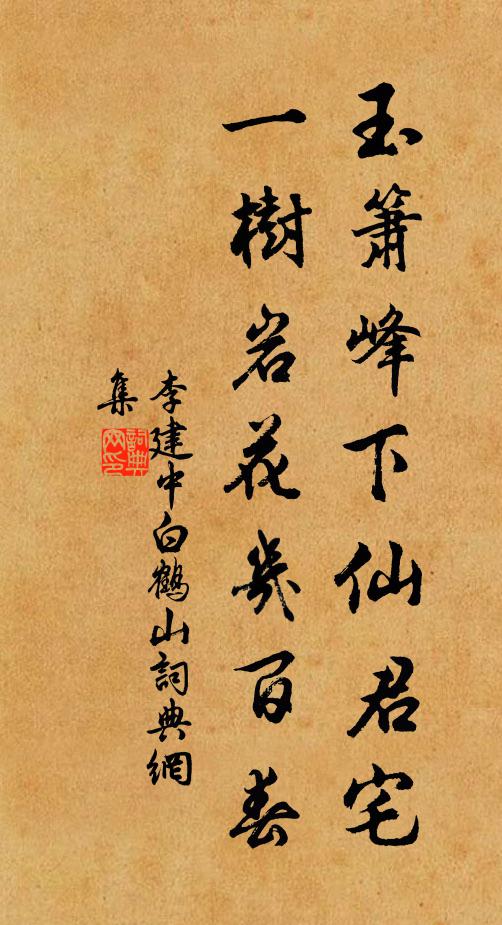 玉簫峰下仙君宅
一樹岩花幾百春
李建中白鶴山詞典網
集
詞典網印